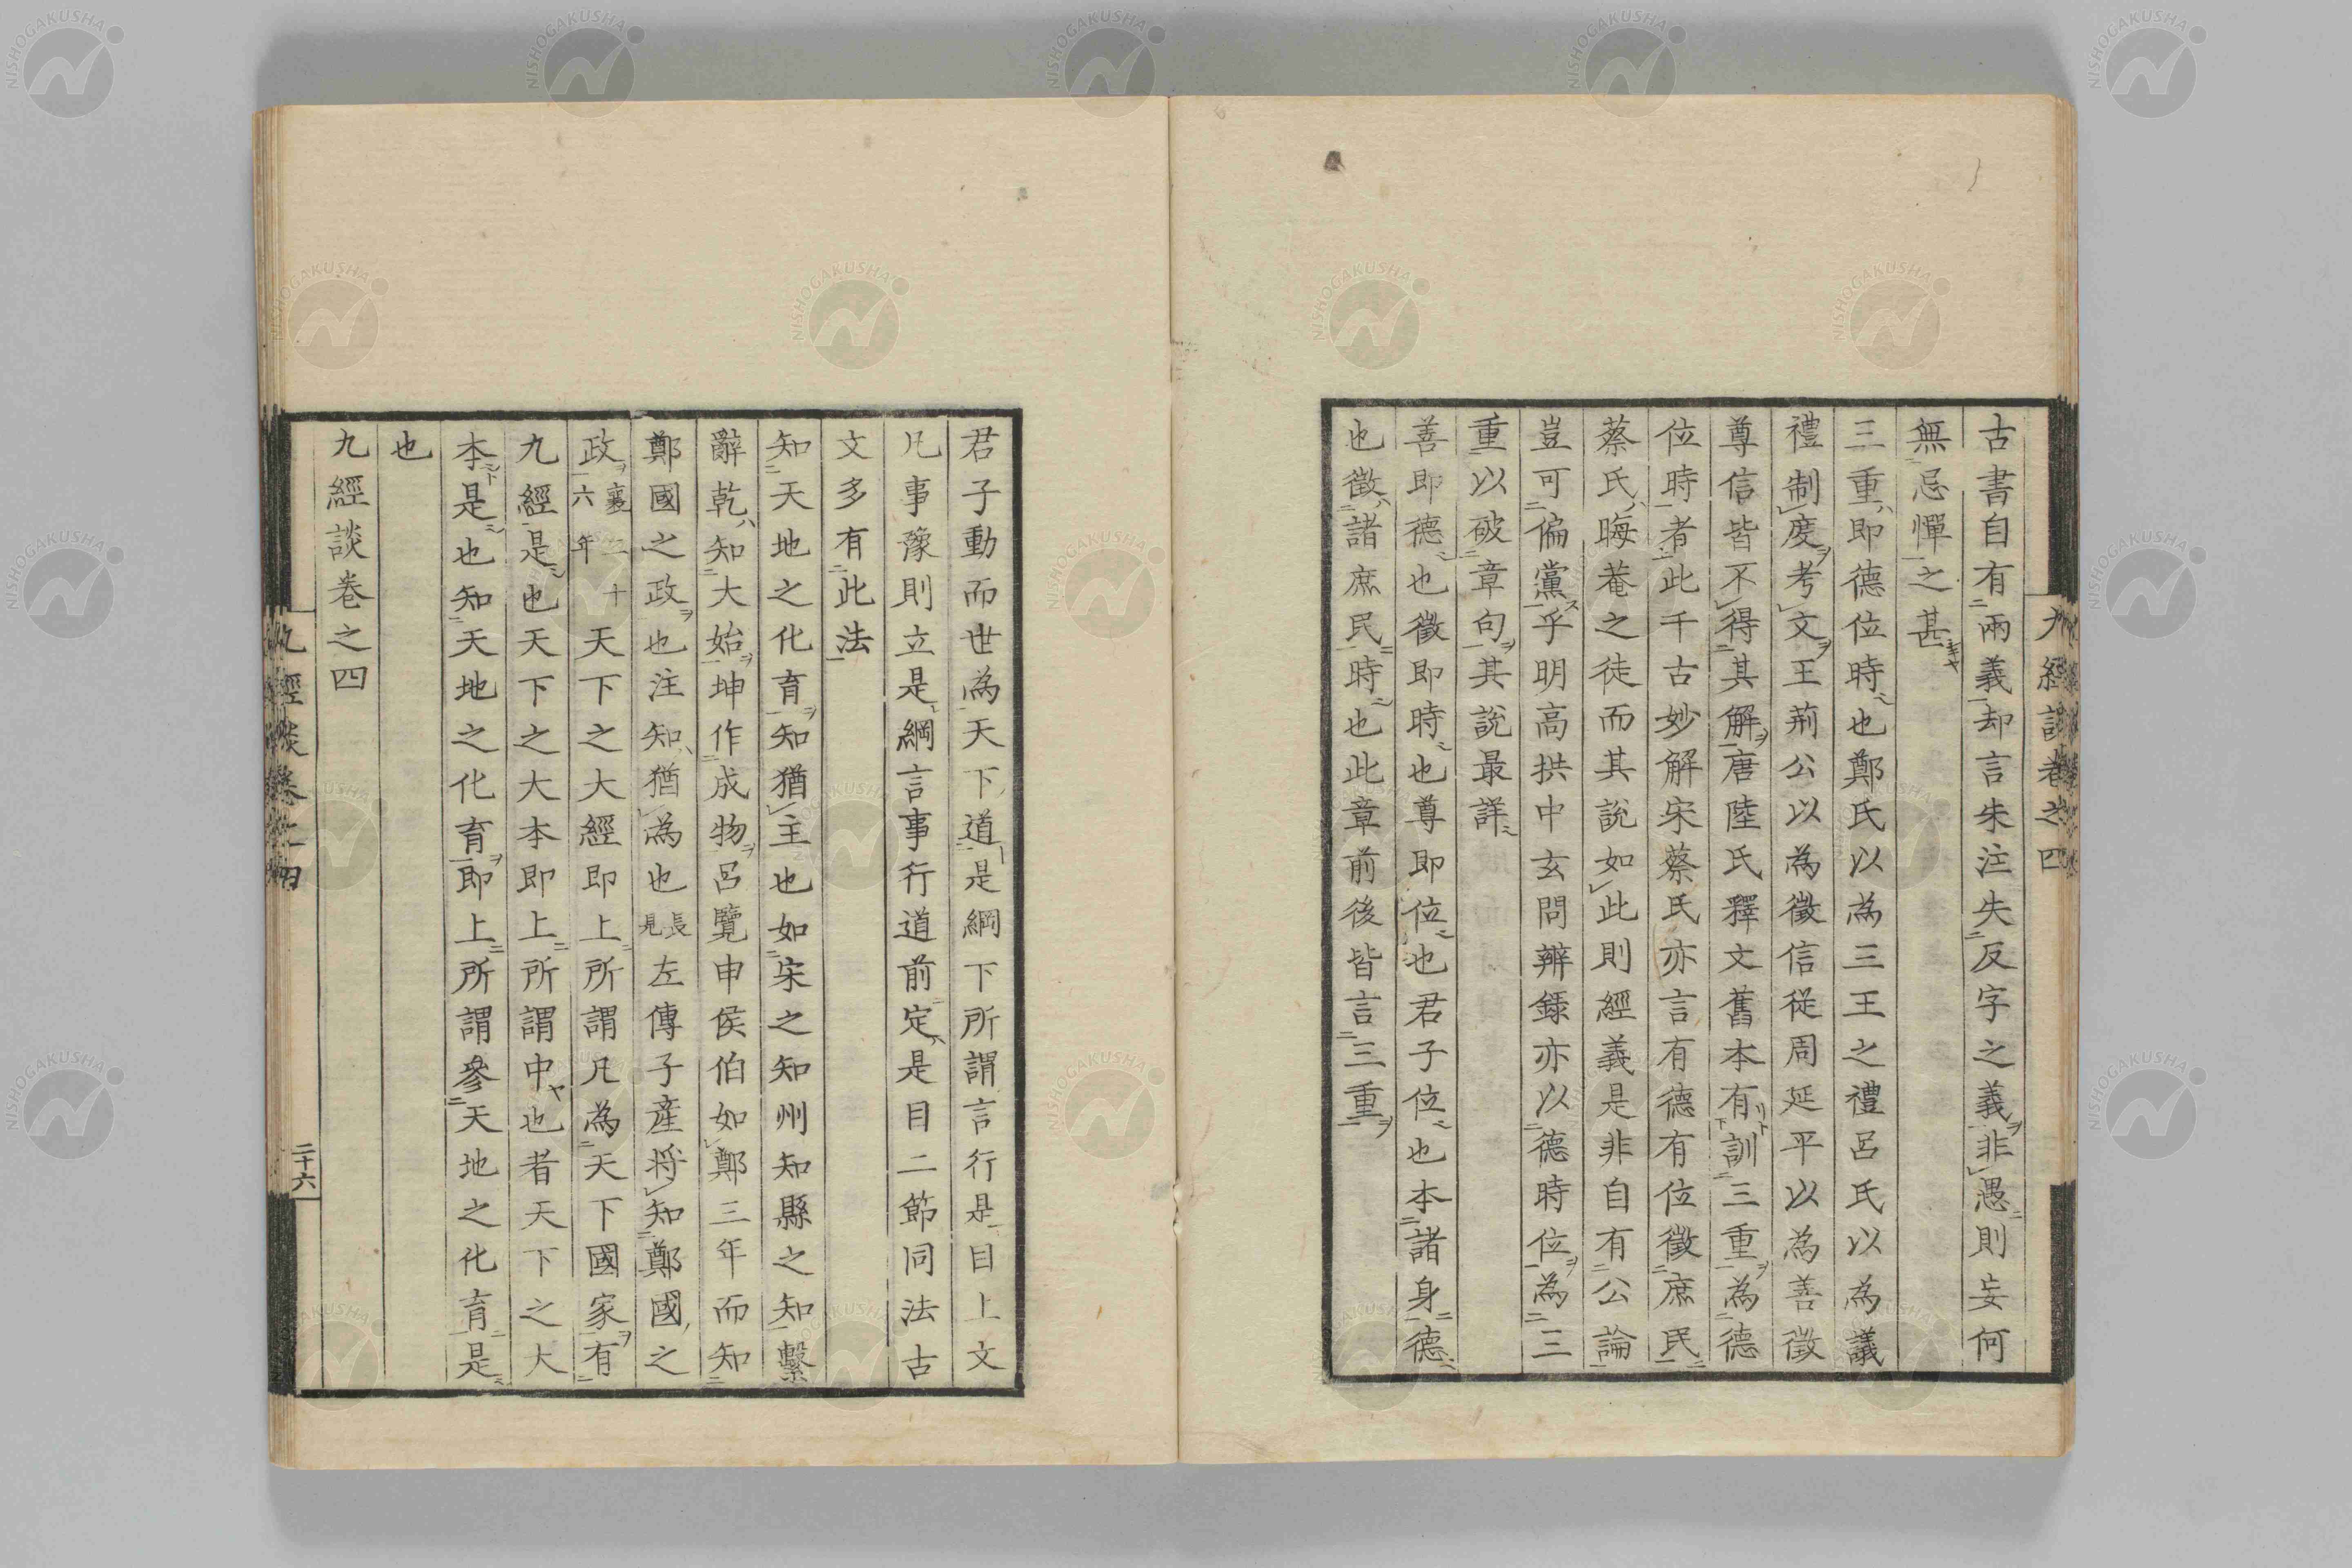 九經談卷之四
古書自有兩義却言朱注失反字之義非愚則妄何
無忌憚之甚
三重即德位時也鄭氏以為三王之禮呂氏以為議
禮制度考文王荊公以為徵信從周延平以為善徵
尊信皆不得其解唐陸氏釋文舊本有訓三重為德
位時者此千古妙解宋蔡氏亦言有德有位徵庶民
蔡氏晦菴之徒而其說如此則經義是非自有公論
豈可偏黨乎明高拱中玄問辨錄亦以德時位為三
重以破章句其說最詳
善即德也徵即時也尊即位也君子位也本諸身德
也徵諸庶民時也此章前後皆言三重
君子動而世為天下道是綱下所謂言行是目上文
凡事豫則立是綱言事行道前定是目二節同法古
文多有此法
知天地之化育知猶主也如宋之知州知縣之知繫
辭乾知大始坤作成物呂覽申侯伯如鄭三年而知
鄭國之政也注知猶為也長見左傳子產將知鄭國之
政襄二十六年天下之大經即上所謂凡為天下國家有
九經是也天下之大本即上所謂中也者天下之大
本是也知天地之化育即上所謂參天地之化育是
也
九經談卷之四
九經談卷之四
二十六
NISHOGAKUSHA